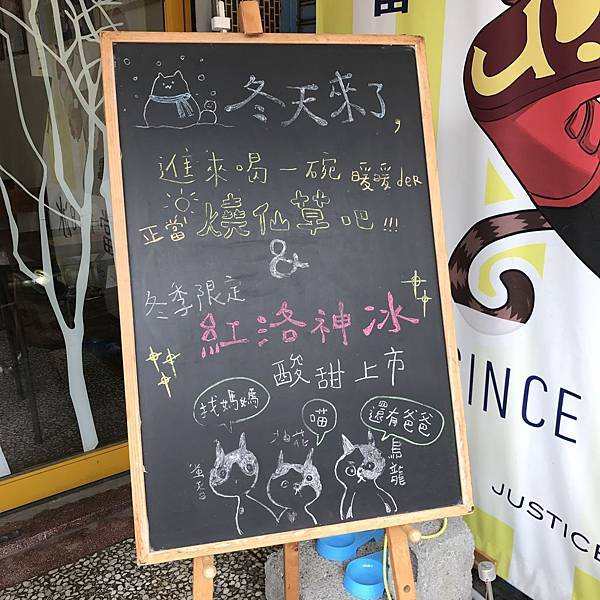 冬天來了,
進來喝一碗 暖暖der
正當燒仙草吧!!!
&
冬季限定
紅洛神冰
酸甜上市
找媽媽
喵
還有爸爸
烏龍
SINCE
JUSTICE